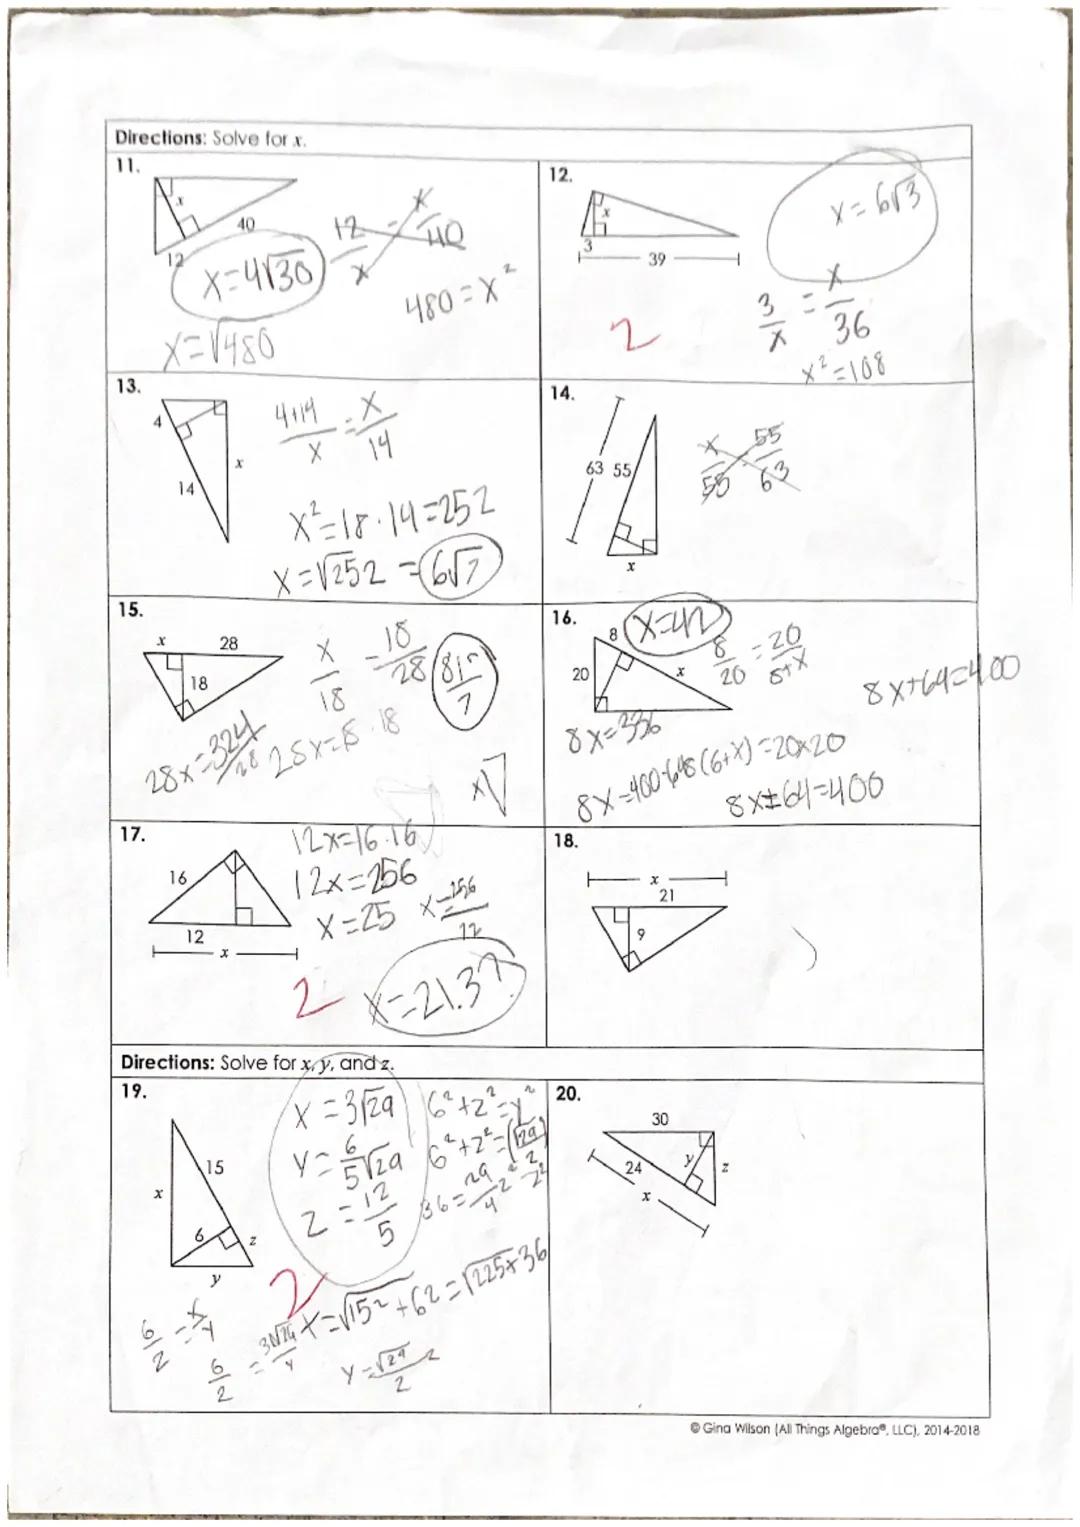 Directions: Solve for x.
11.
x
40
12
12/x = x/40
x=4√30
480=x²
x=√480
12.
x
3
39
x=6√3
3/x = x/36
x²=108
2
13.
4
14
x
4+14/x = x/14
x²=18·14=252
x=√252=6√7
14.
63 55
x
x/55 = 55/63
15.
x 28
18
x/18 = 18/28
81/7
28x=324/28
x
16.
8
20
x
x=42
8/20 = 20/8+x
8x+64=400
8x=336
8x±64=400
17.
16
12
x
12x=16·16
12x=256
x=25
x=256/12
x=21.3
2
18.
x
21
9
Directions: Solve for x, y, and z.
19.
15
x
6
z
y
x=3√29
y=6/5√29
z=12/5
6²+z²=y²
2
x=√15²+6²=√225+36
6/z = x/y
6/2 = 3√29/y
y=√29/2
20.
30
24
y
z
x
© Gina Wilson (All Things Algebra®, LLC), 2014-2018